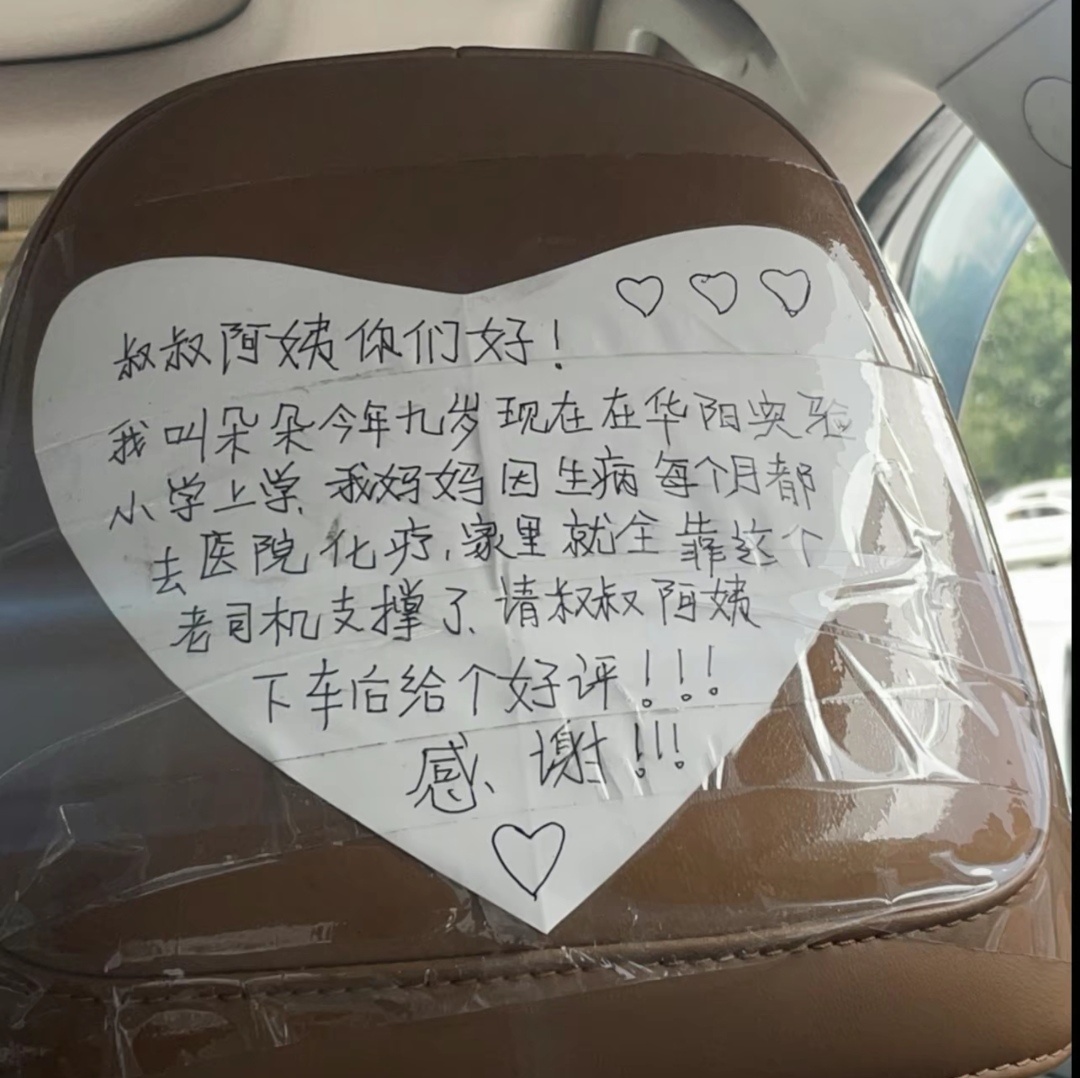 叔叔阿姨你们好！
我叫朵朵今年九岁现在在华阳实验
小学上学、我妈妈因生病每个月都
去医院化疗,家里就全靠这个
老司机支撑了、请叔叔阿姨
下车后给个好评！！！
感、谢！！！